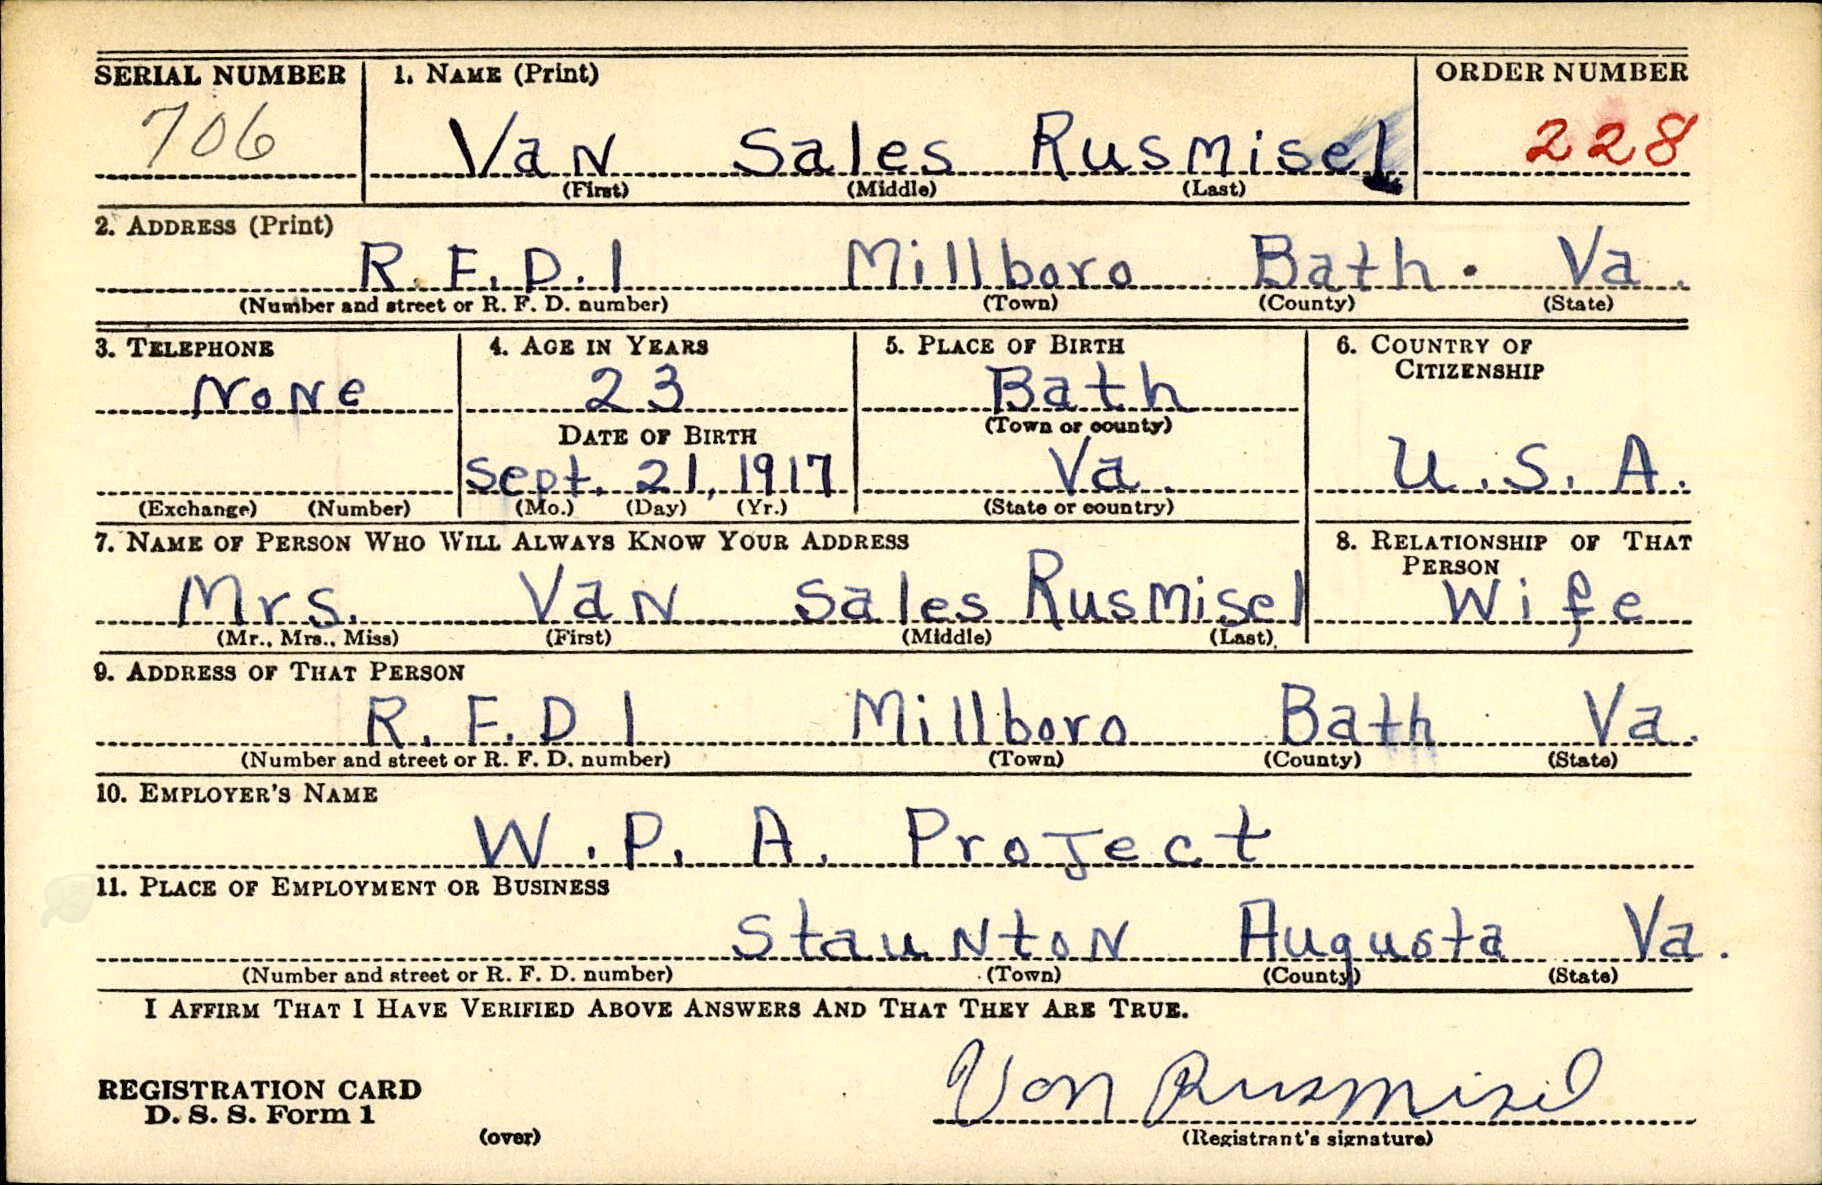 SERIAL NUMBER 1. NAME (Print) ORDER NUMBER
706 Van Sales Rusmisel 228
(First) (Middle) (Last)
2. ADDRESS (Print)
R.F.D.1 Millboro Bath. Va.
(Number and street or R. F. D. number) (Town) (County) (State)
3. TELEPHONE 4. AGE IN YEARS 5. PLACE OF BIRTH 6. COUNTRY OF CITIZENSHIP
None 23 Bath
DATE OF BIRTH (Town or county)
Sept. 21, 1917 Va. U.S.A.
(Exchange) (Number) (Mo.) (Day) (Yr.) (State or country)
7. NAME OF PERSON WHO WILL ALWAYS KNOW YOUR ADDRESS 8. RELATIONSHIP OF THAT PERSON
Mrs. Van Sales Rusmisel Wife
(Mr., Mrs., Miss) (First) (Middle) (Last)
9. ADDRESS OF THAT PERSON
R.F.D 1 Millboro Bath Va.
(Number and street or R. F. D. number) (Town) (County) (State)
10. EMPLOYER'S NAME
W.P.A. Project
11. PLACE OF EMPLOYMENT OR BUSINESS
Staunton Augusta Va.
(Number and street or R. F. D. number) (Town) (County) (State)
I AFFIRM THAT I HAVE VERIFIED ABOVE ANSWERS AND THAT THEY ARE TRUE.
Van Rusmisel
REGISTRATION CARD
D. S. S. Form 1
(over) (Registrant's signature)